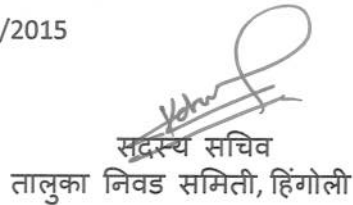 /2015
सदस्य सचिव
तालुका निवड समिती, हिंगोली